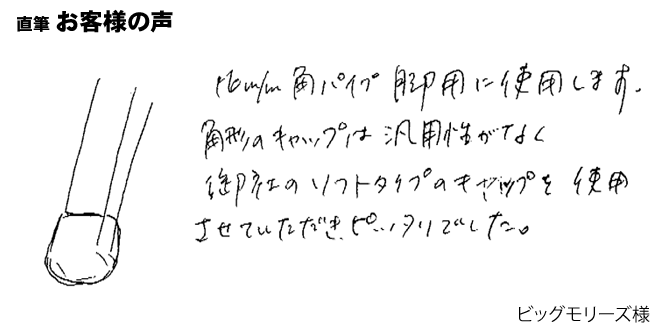 直筆 お客様の声
16m/m角パイプ 脚用に使用します.
角形のキャップは汎用性がなく
御社のソフトタイプのキャップを使用
させていただき、ピッタリでした。
ビッグモリーズ様